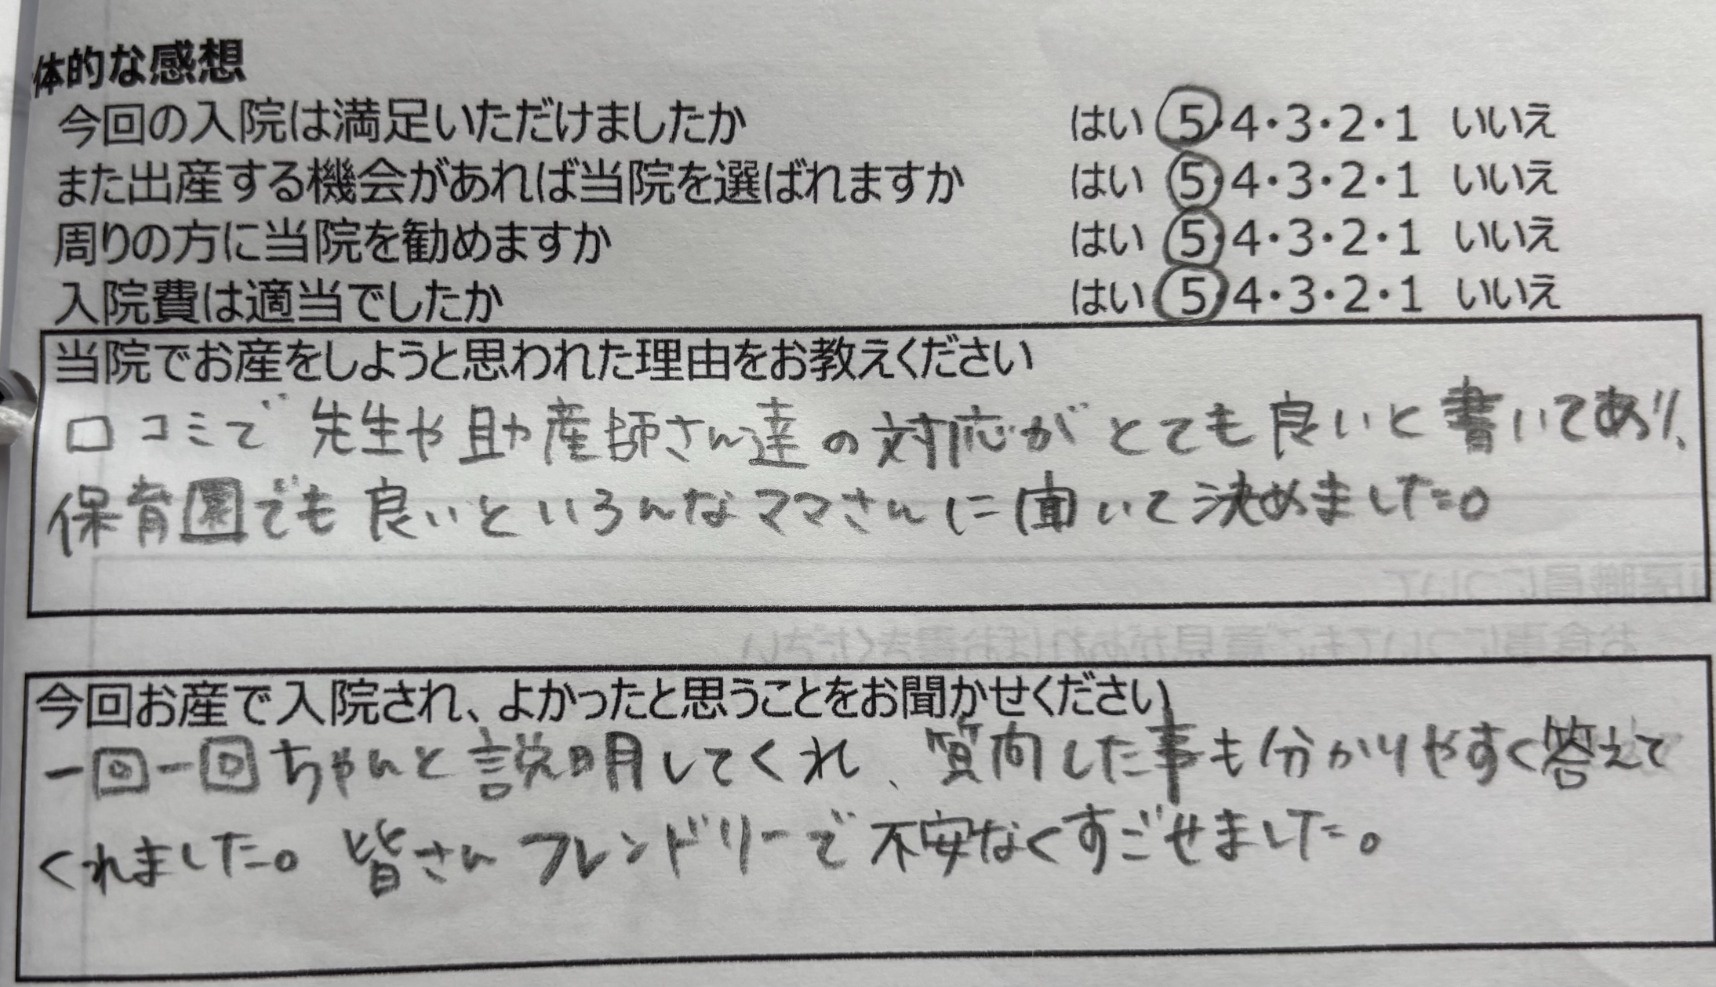 体的な感想
今回の入院は満足いただけましたか はい 5・4・3・2・1 いいえ
また出産する機会があれば当院を選ばれますか はい 5・4・3・2・1 いいえ
周りの方に当院を勧めますか はい 5・4・3・2・1 いいえ
入院費は適当でしたか はい 5・4・3・2・1 いいえ
当院でお産をしようと思われた理由をお教えください
口コミで先生や助産師さん達の対応がとても良いと書いてあり、
保育園でも良いといろんなママさんに聞いて決めました。
今回お産で入院され、よかったと思うことをお聞かせください
一回一回ちゃんと説明してくれ、質問した事も分かりやすく答えて
くれました。皆さんフレンドリーで不安なくすごせました。